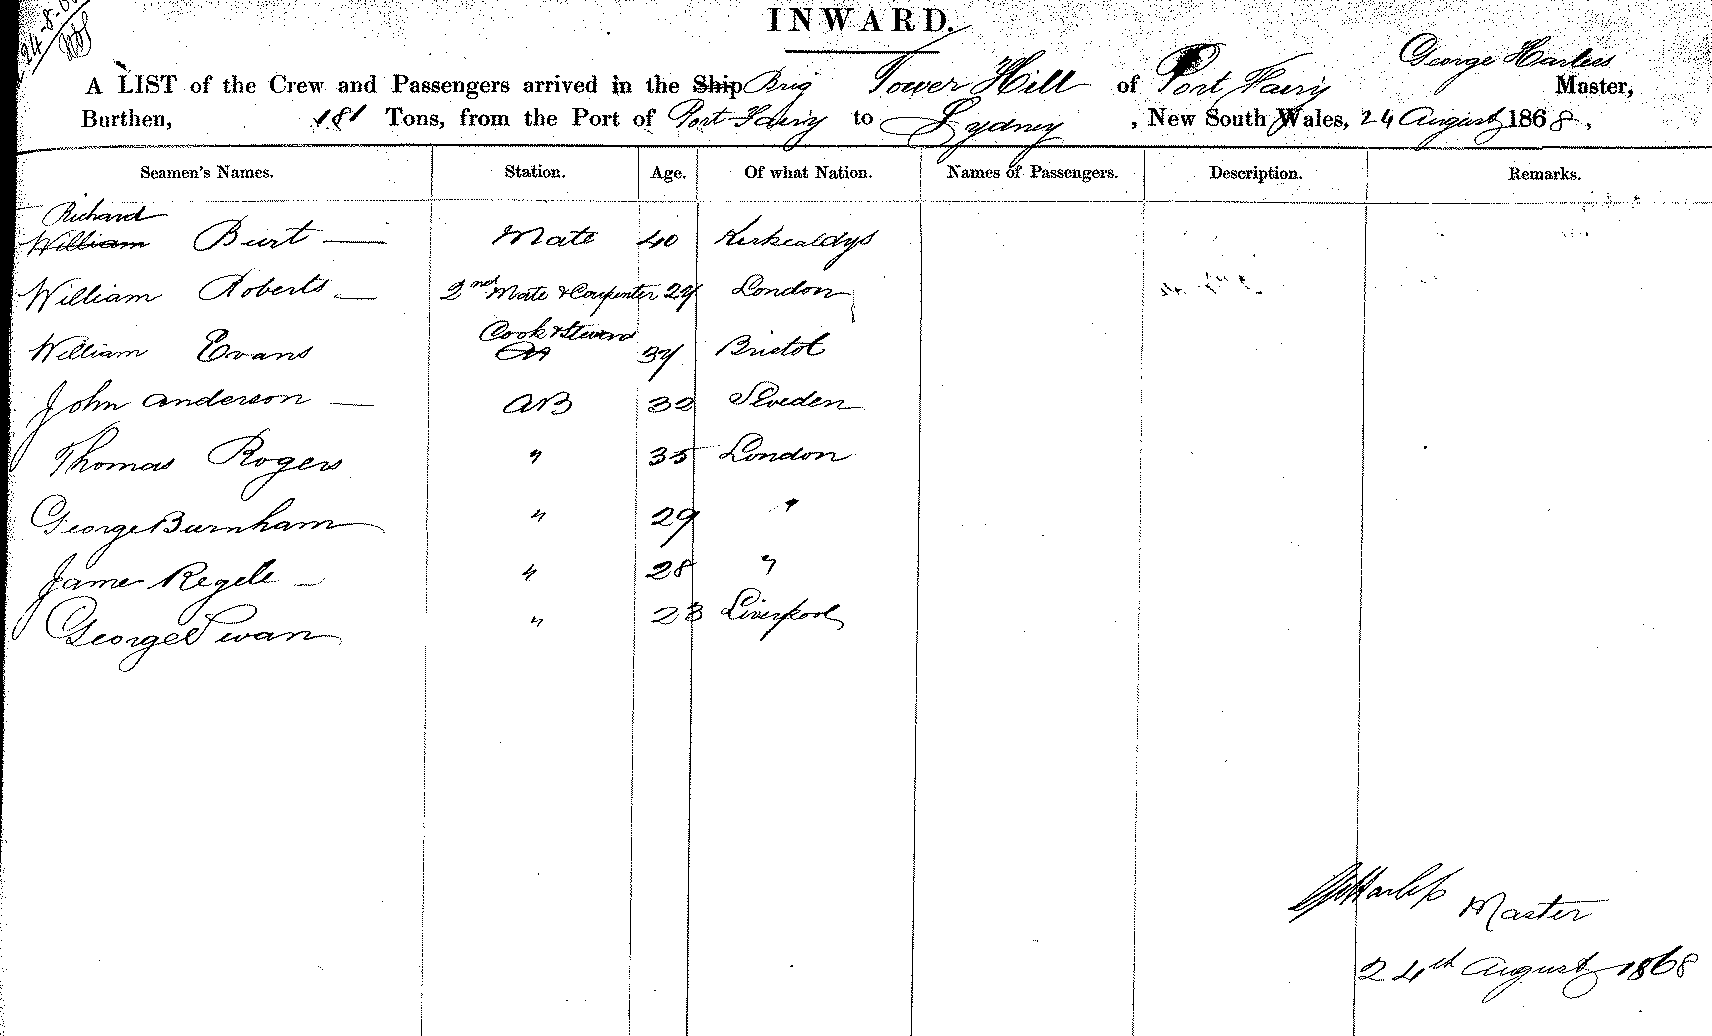 24-8-68
INWARD.
George Harless
A LIST of the Crew and Passengers arrived in the Ship Brig Tower Hill of Port Fairy Master,
Burthen, 181 Tons, from the Port of Port Fairy to Sydney, New South Wales, 24 August 1868,
Seamen's Names. Station. Age. Of what Nation. Names of Passengers. Description. Remarks.
Richard
William Burt — Mate 40 Kirkcaldys
William Roberts — 2nd Mate & Carpenter 27 London
Cook & Steward
William Evans 37 Bristol
John Anderson — AB 32 Sweden
Thomas Rogers " 35 London
George Burnham " 29 "
Jame Regele — " 28 "
George Swan " 23 Liverpool
Geo Harless Master
24th August 1868